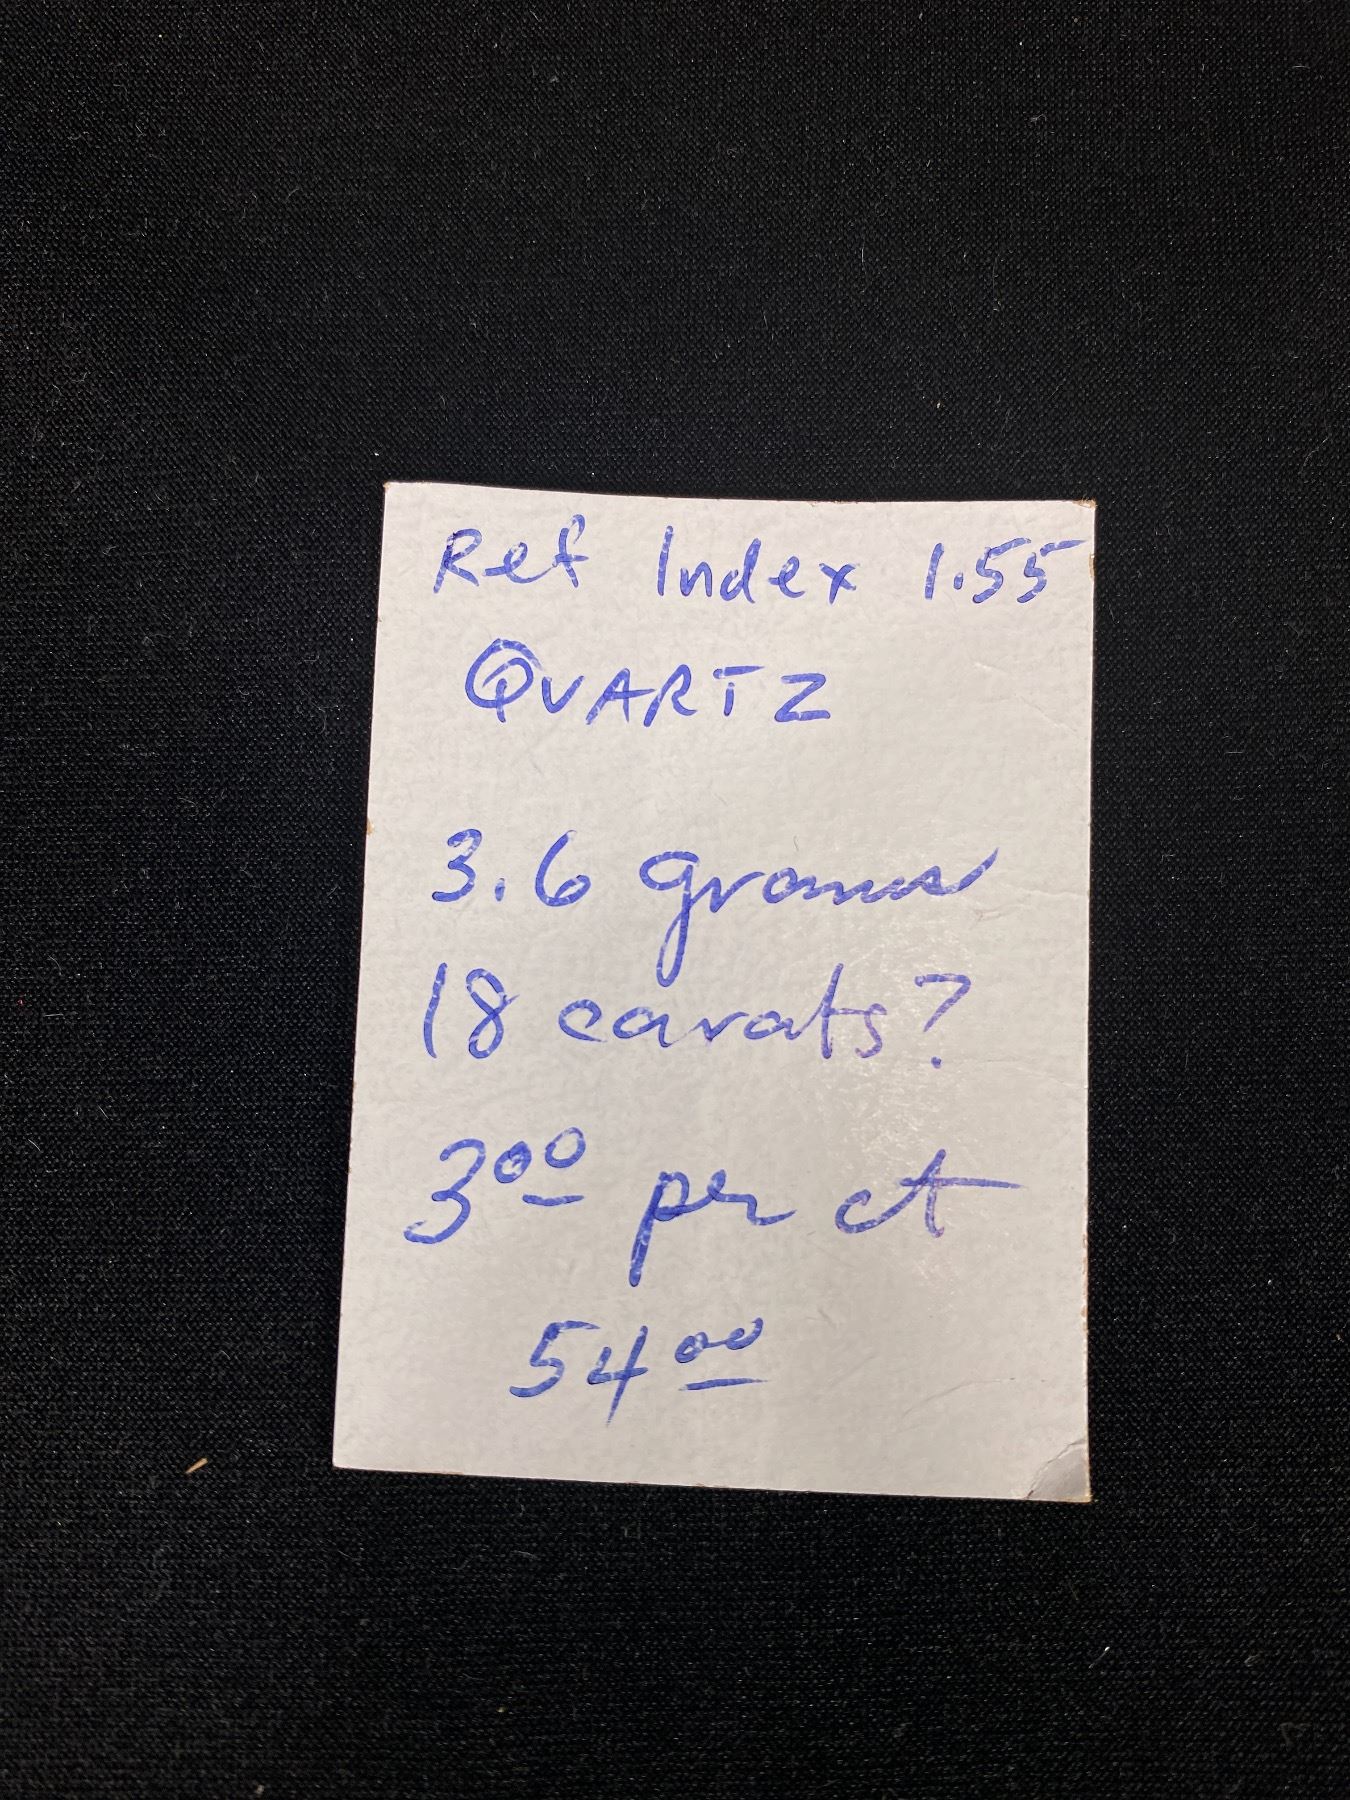 Ref Index 1.55
QUARTZ
3.6 grams
18 carats?
3⁰⁰ per ct
54⁰⁰